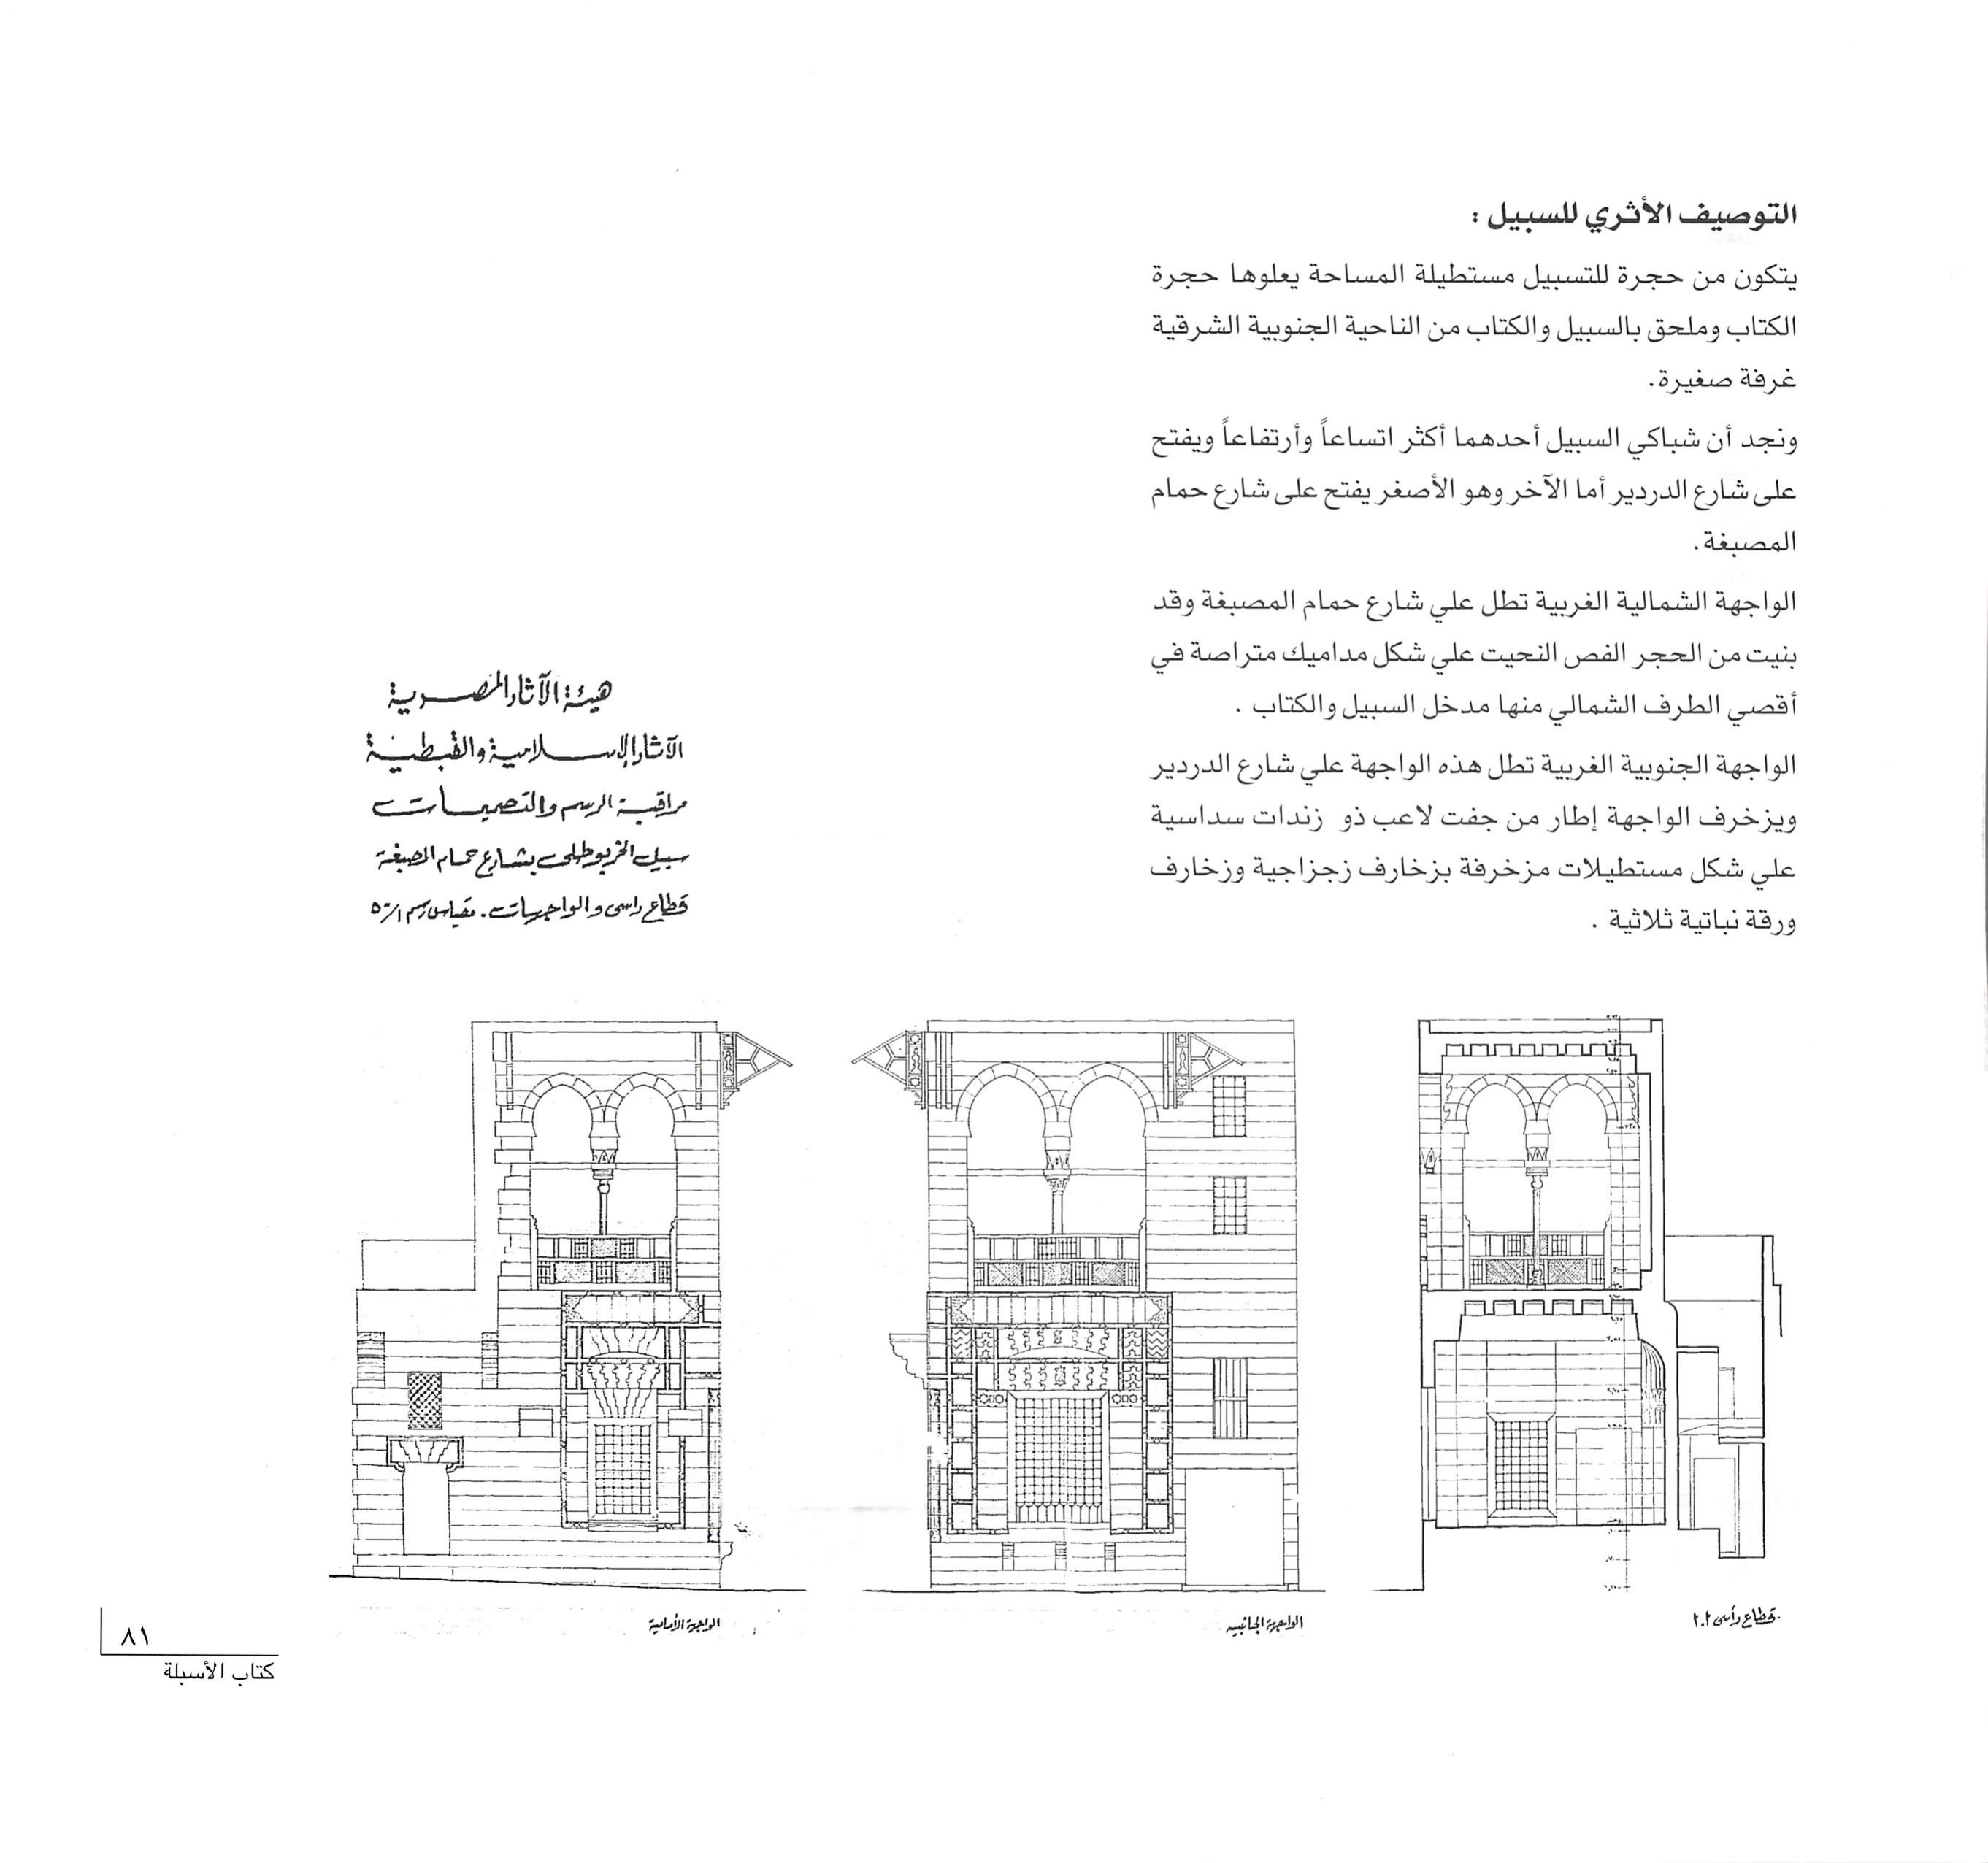 التوصيف الأثري للسبيل :
يتكون من حجرة للتسبيل مستطيلة المساحة يعلوها حجرة
الكتاب وملحق بالسبيل والكتاب من الناحية الجنوبية الشرقية
غرفة صغيرة.
ونجد أن شباكي السبيل أحدهما أكثر اتساعاً وأرتفاعاً ويفتح
على شارع الدردير أما الآخر وهو الأصغر يفتح على شارع حمام
المصبغة.
الواجهة الشمالية الغربية تطل علي شارع حمام المصبغة وقد
بنيت من الحجر الفص النحيت علي شكل مداميك متراصة في
أقصي الطرف الشمالي منها مدخل السبيل والكتاب .
الواجهة الجنوبية الغربية تطل هذه الواجهة علي شارع الدردير
ويزخرف الواجهة إطار من جفت لاعب ذو زندات سداسية
علي شكل مستطيلات مزخرفة بزخارف زجزاجية وزخارف
ورقة نباتية ثلاثية .
هيئة الآثار المصرية
الآثار الإسلامية والقبطية
مراقبة الرسم والتصميمات
سبيل الخربوطلى بشارع حمام المصبغة
قطاع رأسى والواجهات. مقياس رسم
قطاع رأسى
الواجهة الجانبية
الواجهة الأمامية
٨١
كتاب الأسبلة